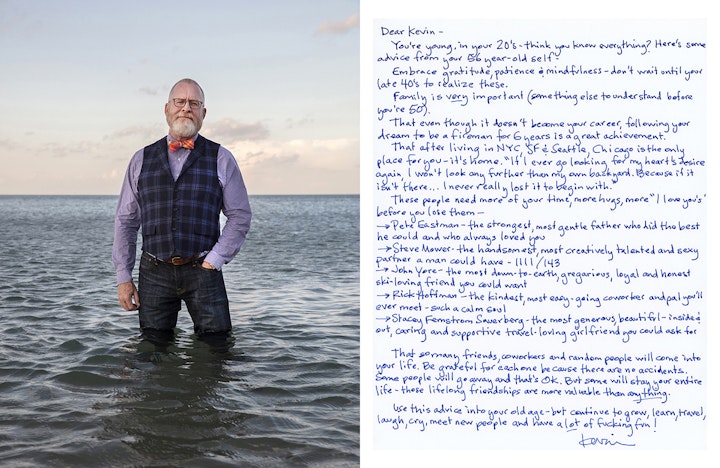 Dear Kevin –
You're young, in your 20's – think you know everything? Here's some
advice from your 56 year-old self –
Embrace gratitude, patience & mindfulness – don't wait until your
late 40's to realize these.
Family is very important (something else to understand before
you're 50).
That even though it doesn't become your career, following your
dream to be a fireman for 6 years is a great achievement.
That after living in NYC, SF & Seattle, Chicago is the only
place for you – it's home. "If I ever go looking for my heart's desire
again, I won't look any further than my own backyard. Because if it
isn't there... I never really lost it to begin with."
These people need more of your time, more hugs, more "I love you's"
before you lose them –
→ Pete Eastman – the strongest, most gentle father who did the best
he could and who always loved you
→ Steve Mower – the handsomest, most creatively talented and sexy
partner a man could have – 1111/143
→ John Yore – the most down-to-earth, gregarious, loyal and honest
ski-loving friend you could want
→ Rick Hoffman – the kindest, most easy-going coworker and pal you'll
ever meet – such a calm soul
→ Stacey Fernstrom Sauerberg – the most generous, beautiful – inside &
out, caring and supportive travel-loving girlfriend you could ask for
That so many friends, coworkers and random people will come into
your life. Be grateful for each one because there are no accidents.
Some people will go away and that's OK. But some will stay your entire
life – those lifelong friendships are more valuable than anything.
Use this advice into your old age – but continue to grow, learn, travel,
laugh, cry, meet new people and have a lot of fucking fun!
Kevin